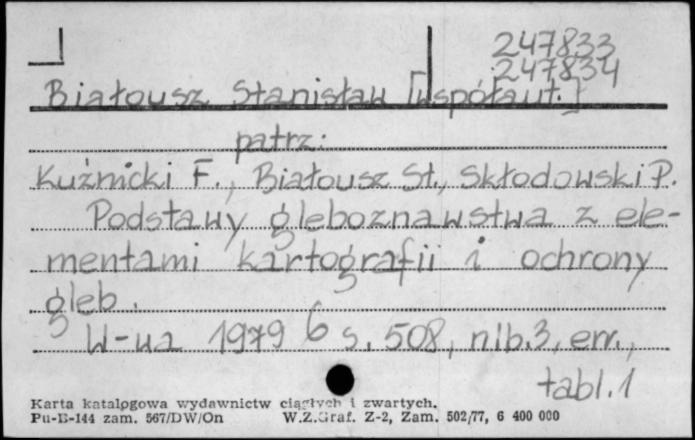 247833
247834
Białousz Stanisław [współaut.]
patrz:
Kuźnicki F., Białousz St., Skłodowski P.
Podstawy gleboznawstwa z ele-
mentami kartografii i ochrony
gleb.
W-wa 1979 6 s. 508, nlb. 3, err.,
tabl. 1
Karta katalogowa wydawnictw ciągłych i zwartych.
Pu-B-144 zam. 567/DW/On W.Z.Graf. Z-2, Zam. 502/77, 6 400 000